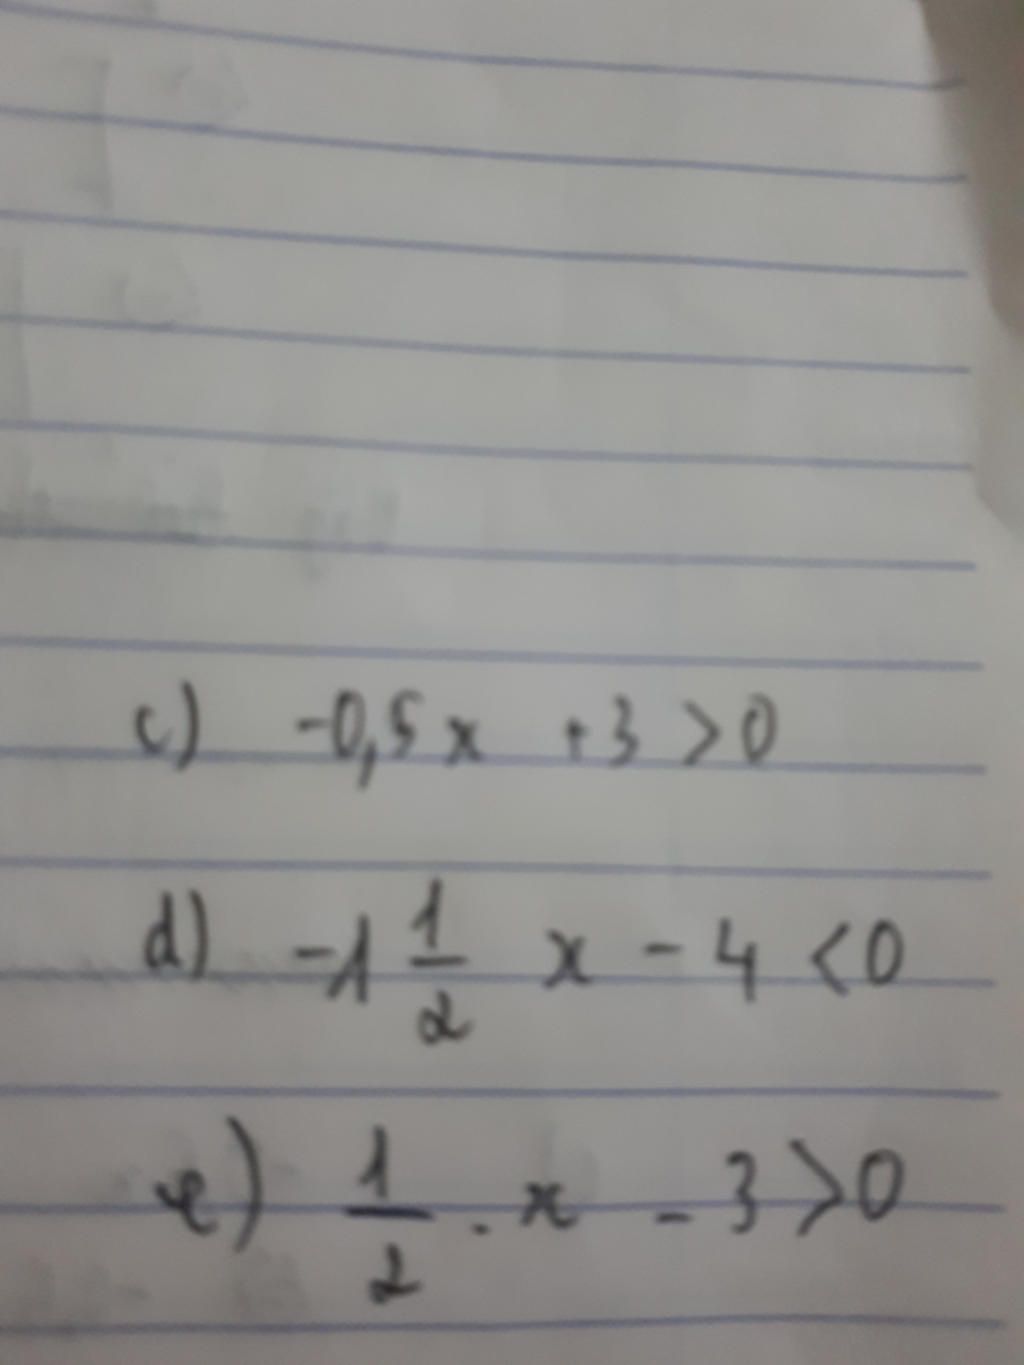 c) -0,5x +3 > 0
d) -1 1/2 x - 4 < 0
e) 1/2 . x - 3 > 0